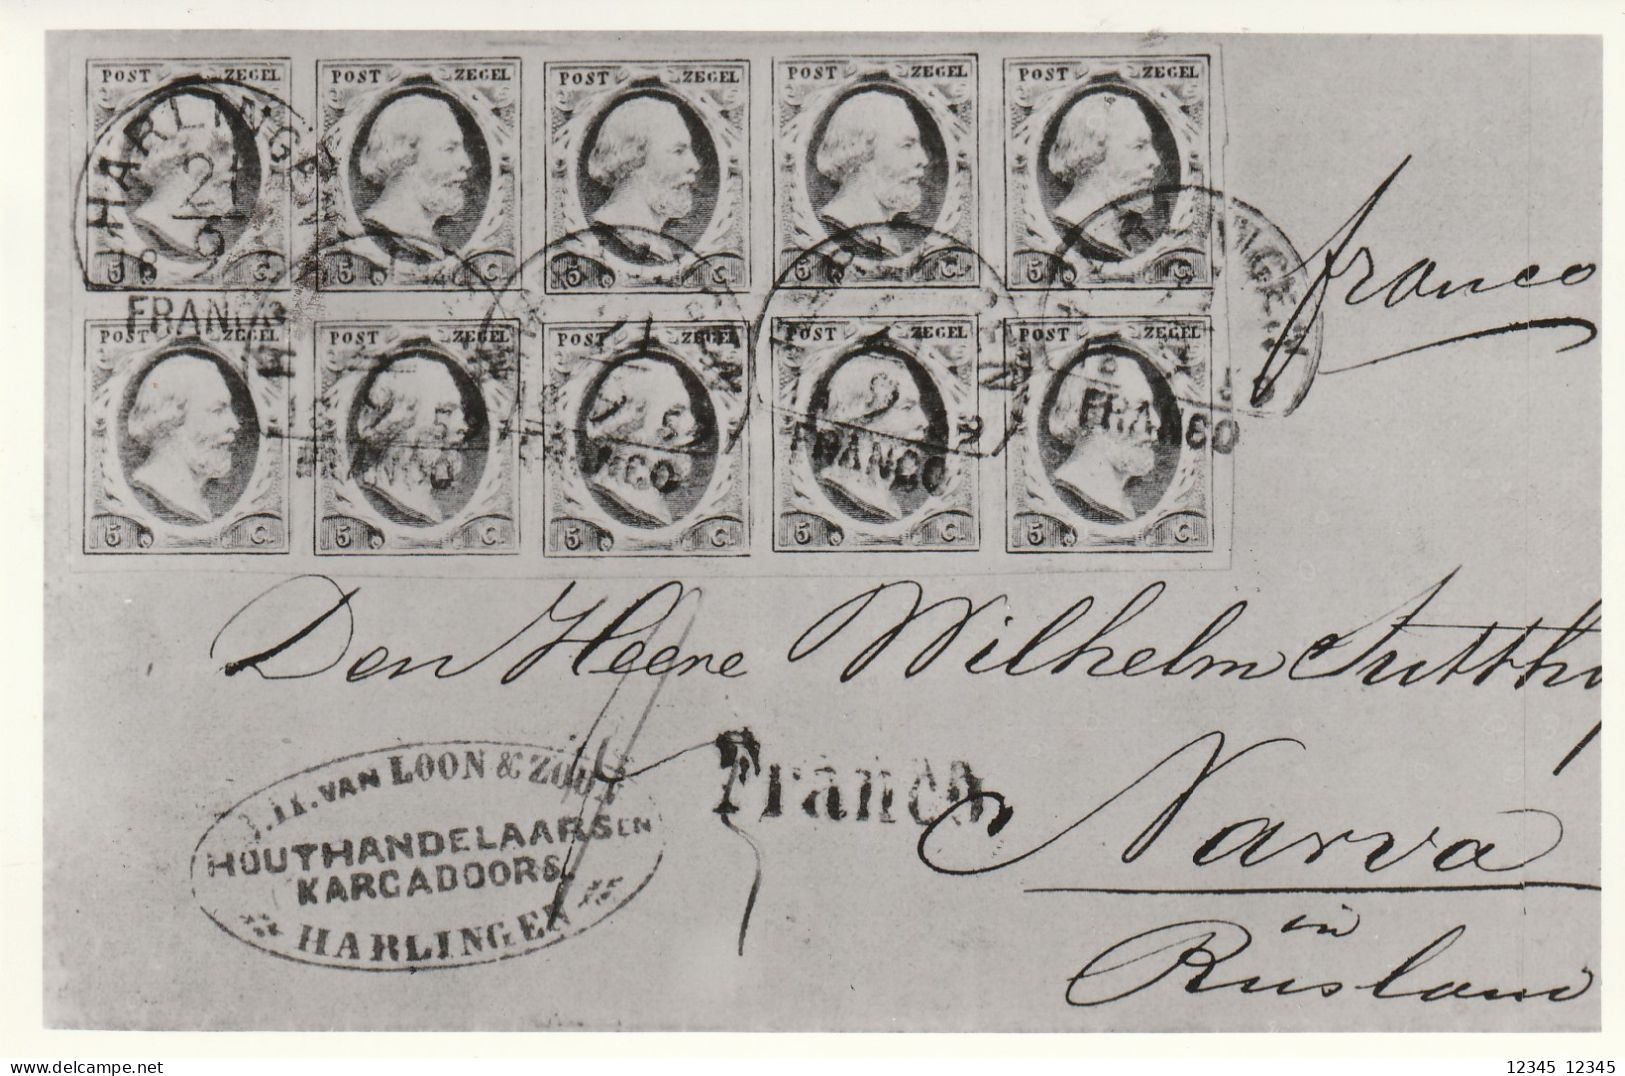 POST ZEGEL POST ZEGEL POST ZEGEL POST ZEGEL POST ZEGEL
HARLINGEN
21
6
5 C. 5 C. 5 C. 5 C. 5 C.
FRANCO
franco
POST ZEGEL POST ZEGEL POST ZEGEL POST ZEGEL POST ZEGEL
FRANCO
FRANCO
5 C. 5 C. 5 C. 5 C. 5 C.
Den Heere Wilhelm
J.H. VAN LOON & ZOON
HOUTHANDELAARS EN
KARGADOORS.
HARLINGEN
Franco.
Narva
in
Rusland
12345 12345